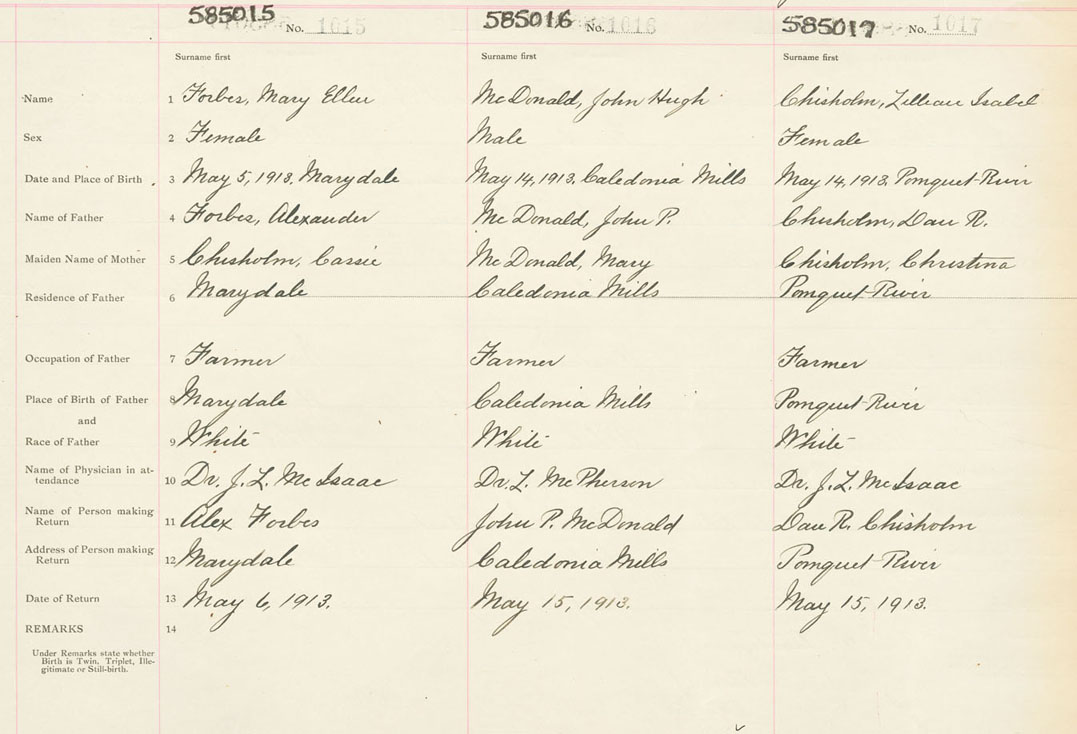 585015 No. 1615 585016 No. 1616 585017 No. 1017
Surname first Surname first Surname first
Name 1 Forbes, Mary Ellen McDonald, John Hugh Chisholm, Lillian Isabel
Sex 2 Female Male Female
Date and Place of Birth 3 May 5, 1913, Marydale May 14, 1913, Caledonia Mills May 14, 1913, Pomquet River
Name of Father 4 Forbes, Alexander McDonald, John P. Chisholm, Dan R.
Maiden Name of Mother 5 Chisholm, Cassie McDonald, Mary Chisholm, Christina
Residence of Father 6 Marydale Caledonia Mills Pomquet River
Occupation of Father 7 Farmer Farmer Farmer
Place of Birth of Father 8 Marydale Caledonia Mills Pomquet River
and
Race of Father 9 White White White
Name of Physician in at-
tendance 10 Dr. J. L. McIsaac Dr. L. McPherson Dr. J. L. McIsaac
Name of Person making
Return 11 Alex Forbes John P. McDonald Dan R. Chisholm
Address of Person making
Return 12 Marydale Caledonia Mills Pomquet River
Date of Return 13 May 6, 1913. May 15, 1913. May 15, 1913.
REMARKS 14
Under Remarks state whether
Birth is Twin, Triplet, Ille-
gitimate or Still-birth.